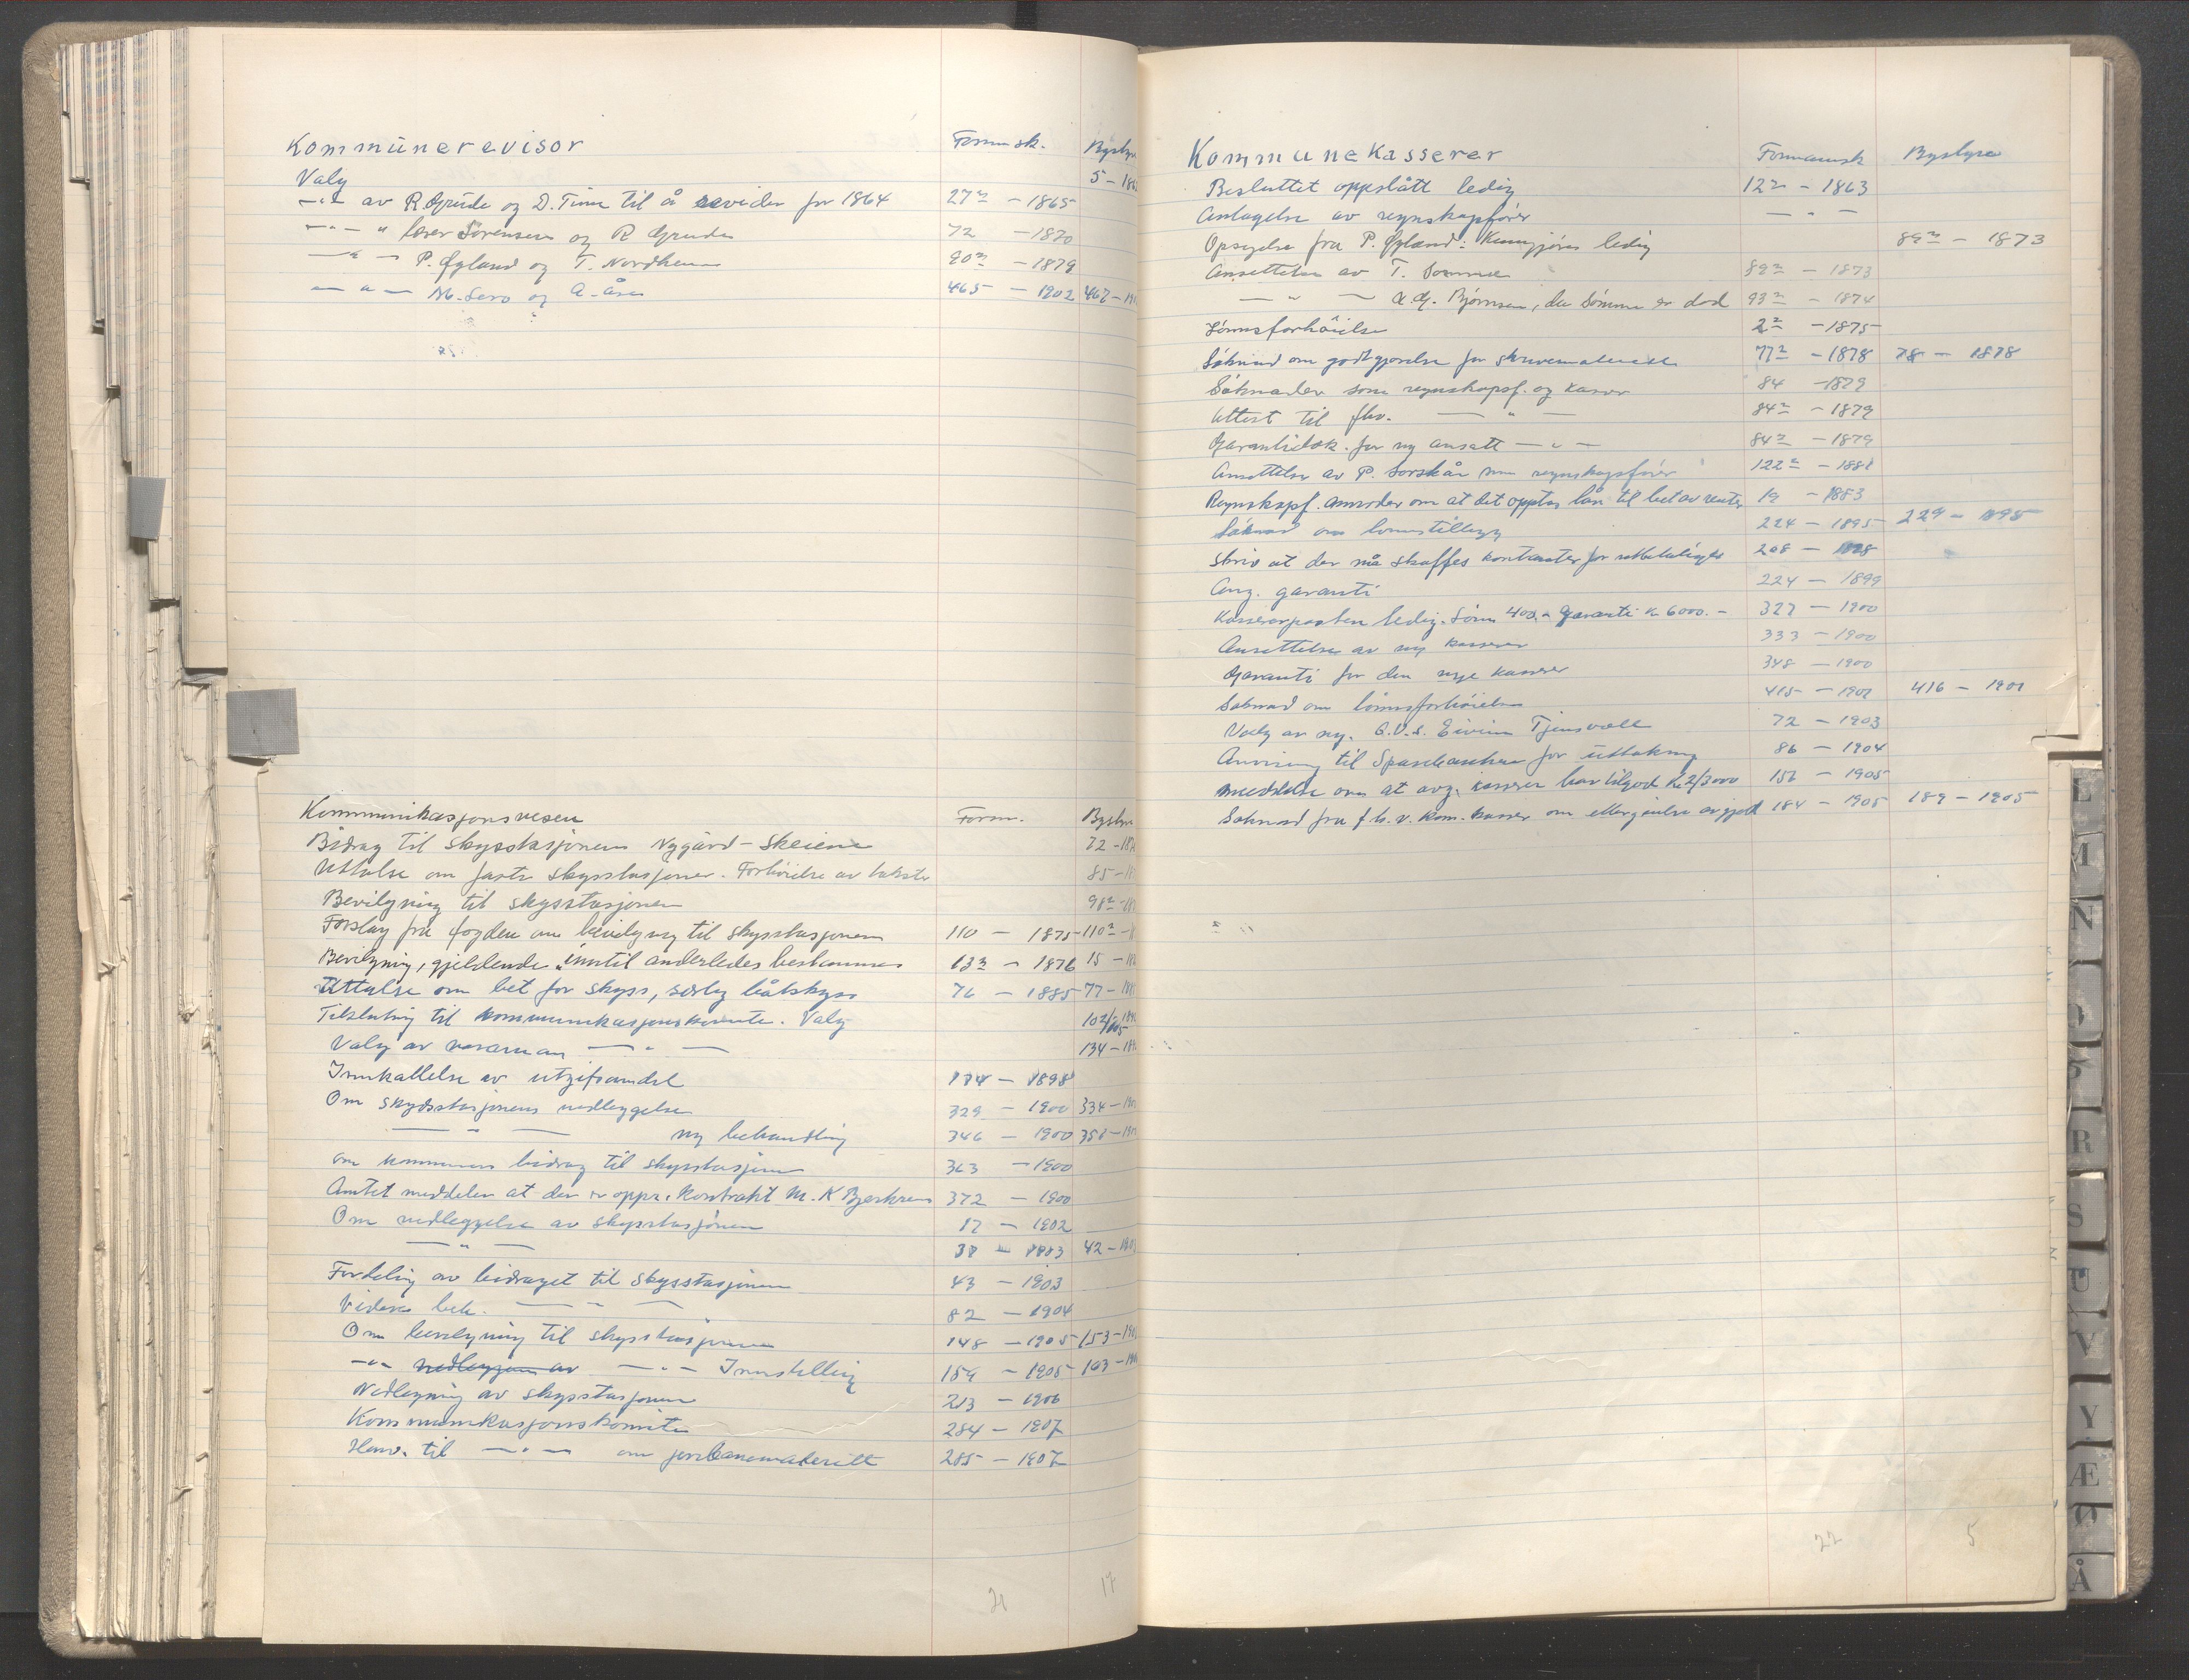 Kommunerevisor Formsk. Bystyre
Valg 5 - 186
-"- av R. Grude og D. Time til å revidere for 1864 27 2 - 1865
-"- " lærer Sørensen og R Grude 72 - 1870
-"- P. Øgland og T. Nordheim 90 2 - 1879
-"- M. og A. 465 - 1902 467 - 19
Kommunikasjonsvesen Form. Bystyre
Bidrag til skysstasjonen Nygård - Skeiene 72 - 18
Uttalelse om faste skysstasjoner. Forhöielse av takster 85 - 1
Bevilgning til skysstasjonen 98 2 - 18
Forslag fra fogden om bevilgning til skysstasjonen 110 - 1875 - 110 2 -
Bevilgning, gjeldende "inntil anderledes bestemmes 13 2 - 1876 15 - 18
Uttalse om bet for skyss, særlig båtskyss 76 - 1885 - 77 - 18
Tilslutning til kommunikasjonskomite. Valg 102/105 - 18
Valg av varaman -"- 134 - 18
Innkallelse av 174 - 1898
Om skydsstasjonens nedleggelse 329 - 1900 334 - 19
-"- ny behandling 346 - 1900 358 - 19
om kommunens bidrag til skysstasjonen 363 - 1900
Amtet meddeler at der er oppr. kontrakt M. K Bjerkrem 372 - 1900
Om nedleggelse av skysstasjonen 17 - 1902
-"- 38 - 1903 42 - 190
Fordeling av bidraget til skysstasjonen 43 - 1903
Videre beh. -"- 82 - 1904
Om bevilgning til skysstasjonen 148 - 1905 153 - 190
-"- nedleggen av -"- Innstilling 159 - 1905 163 - 190
Nedlegning av skysstasjonen 213 - 1906
Kommunikasjonskomite 284 - 1907
Henv. til -"- om jernbanemateriell 285 - 1907
21 17
Kommunekasserer Formannsk Bystyre
Besluttet oppslått ledig 12 2 - 1863
Antagelse av regnskapsfører - " -
Opsigelse fra P. Øgland: Kunngjøres ledig 89 2 - 1873
Ansettelse av T. Somme 89 2 - 1873
-"- A. G. Bjørnsen, da Sömme er död 93 2 - 1874
Lönnsforhöielse 2 2 - 1875
Söknad om godtgjørelse for skrivemateriell 77 2 - 1878 78 - 1878
Söknader som regnskapsf. og kasser 84 - 1879
Attest til fhv. -"- 84 2 - 1879
Garantidok. for ny ansatt -"- 84 2 - 1879
Ansettelse av P. som regnskapsfører 122 2 - 1881
Regnskapsf. anmoder om at det opptas lån til bet av renter 19 - 1883
Söknad om lønnstillegg 224 - 1895 229 - 1895
Skriv at der må skaffes kontanter for utbetalinger 208 - 1898
Ang. garanti 224 - 1899
Kassererposten ledig. Lönn 400.- Garanti kr 6000.- 327 - 1900
Ansettelse av ny kasserer 333 - 1900
Garanti for den nye kasserer 348 - 1900
Söknad om lönnsforhöielse 415 - 1901 416 - 1901
Valg av ny. O.V.S. Eivinn Tjensvoll 72 - 1903
Anvisning til Sparebanken for uttakning 86 - 1904
Meddelelse om at avg. kasserer har tilgode kr 2/3000 152 - 1905
Söknad fra f.h.v. kom. kasser om ettergivelse av gjeld 184 - 1905 189 - 1905
22 5
L
M
N
O
P
R
S
U
V
Y
Æ
Ø
Å